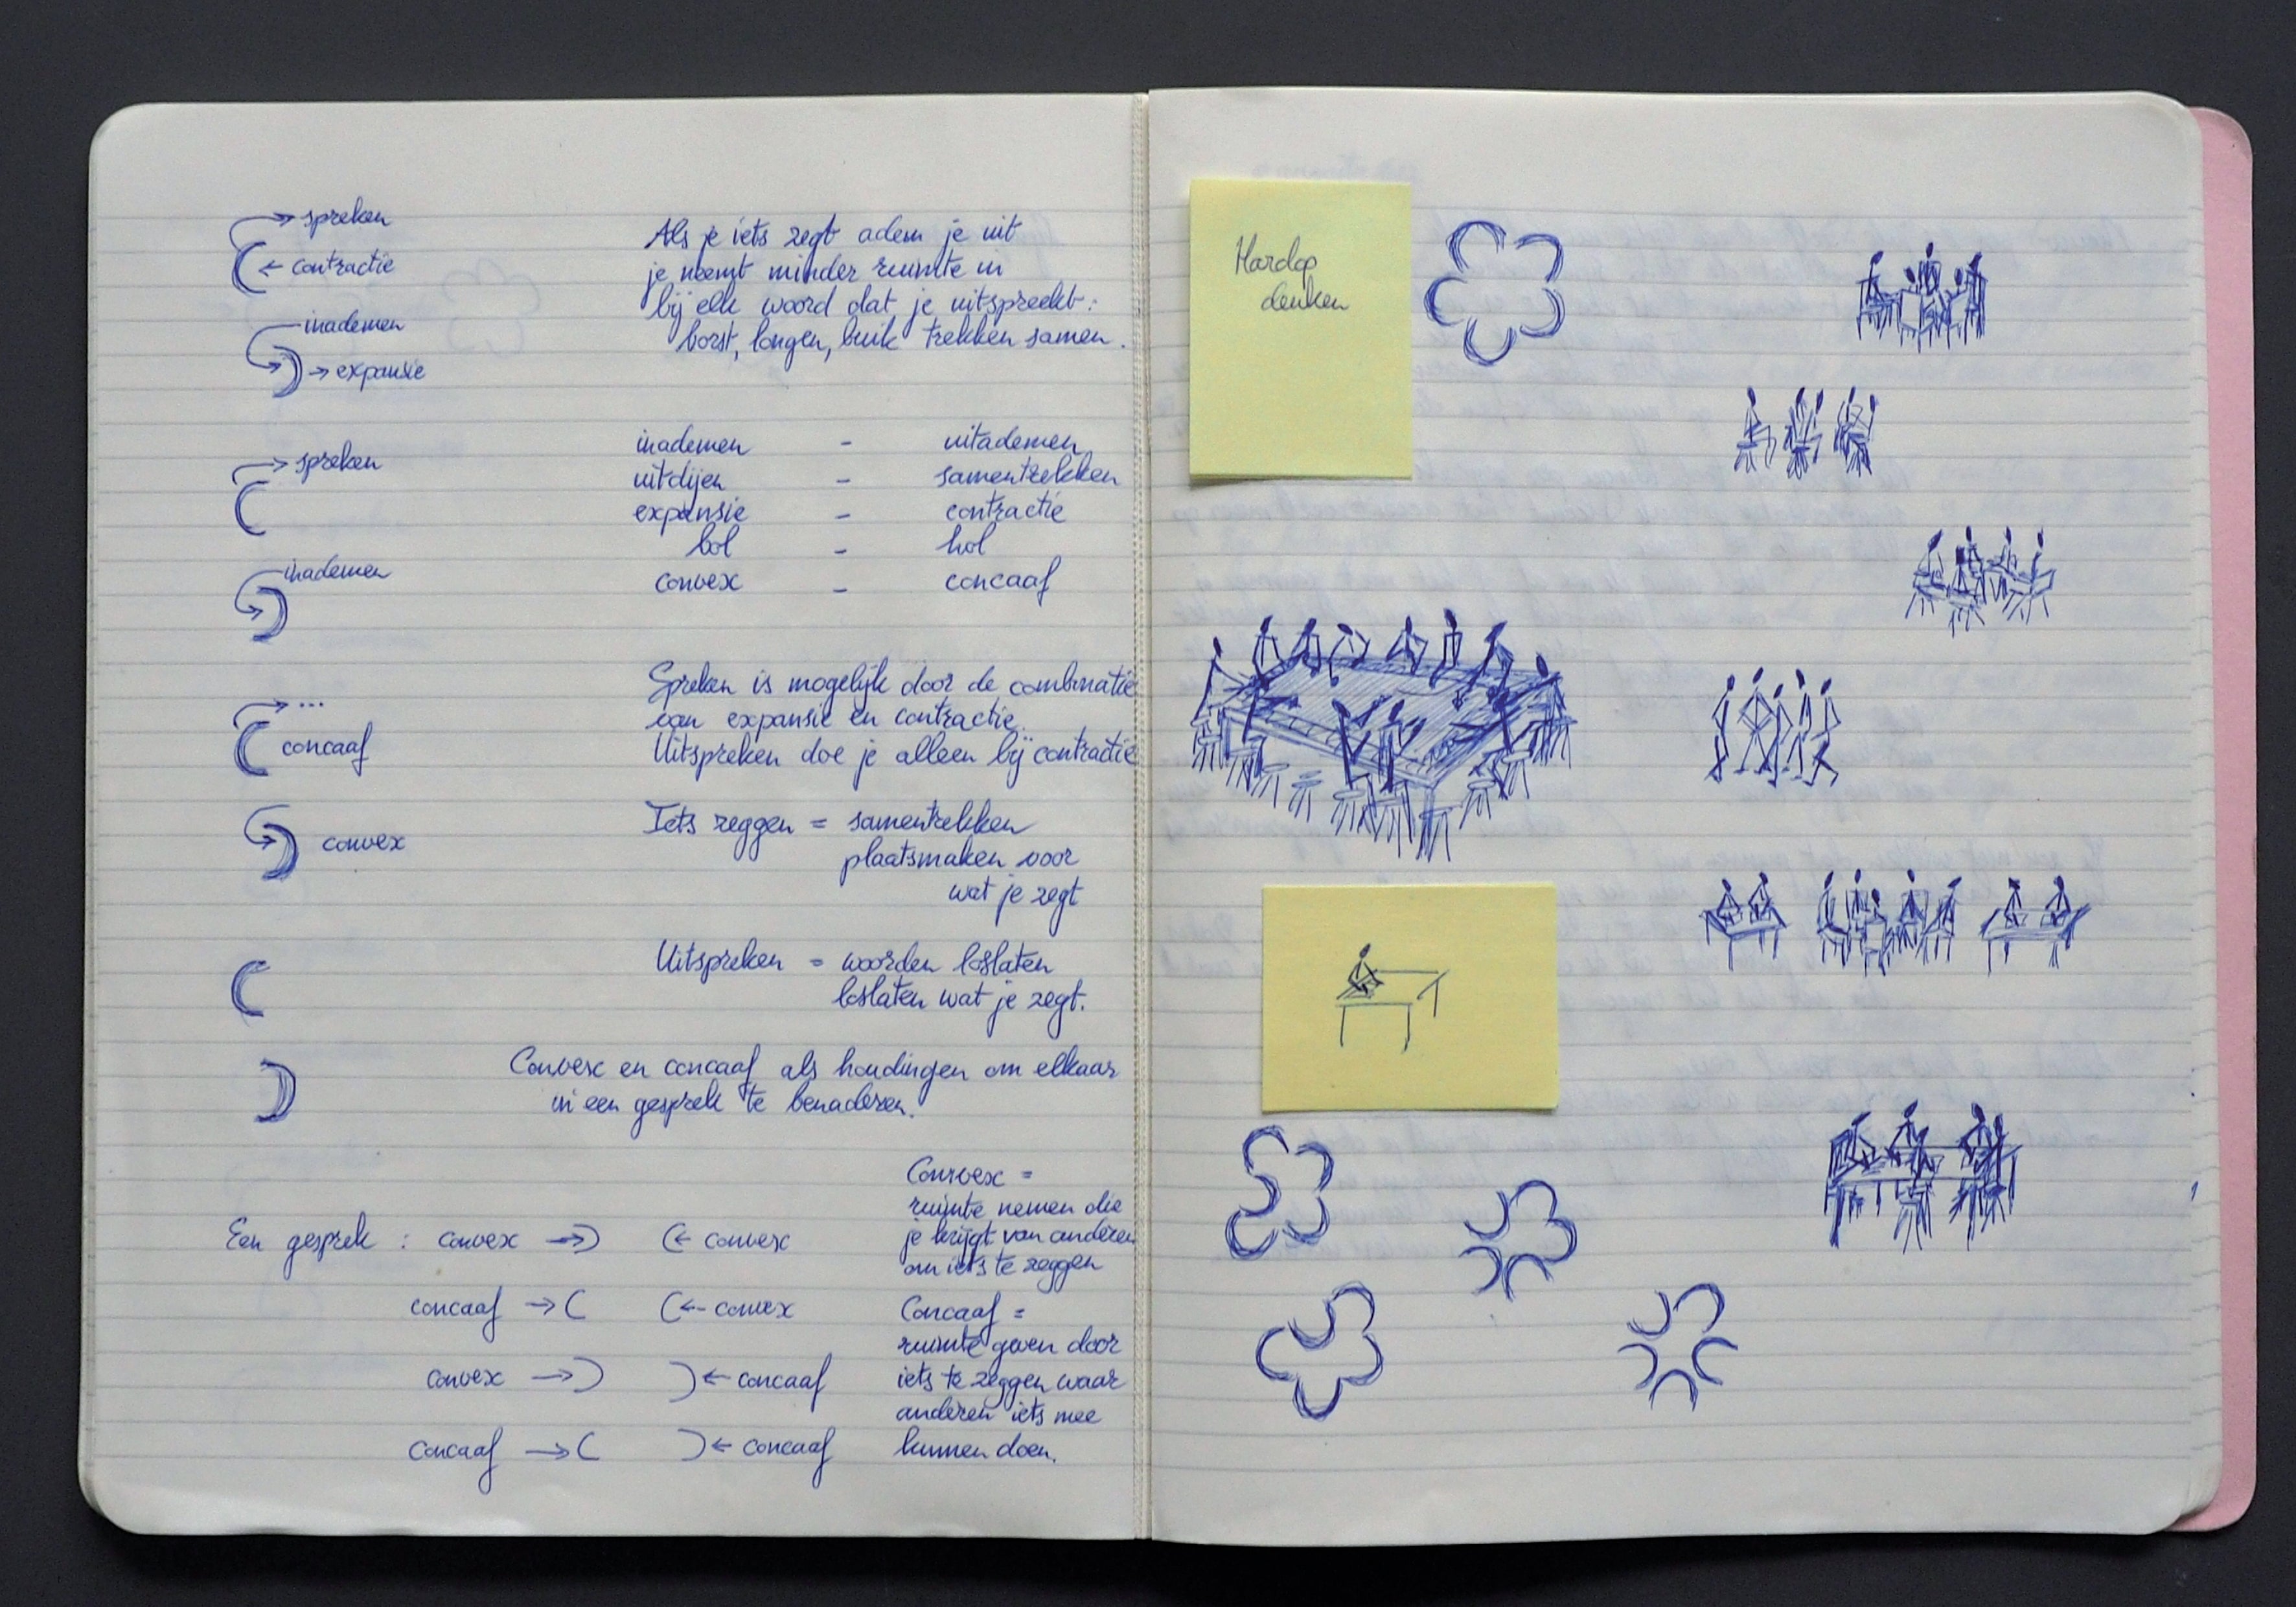 spreken
← contractie
inademen
→ expansie
Als je iets zegt adem je uit
je neemt minder ruimte in
bij elk woord dat je uitspreekt:
borst, longen, buik trekken samen.
spreken
inademen
inademen - uitademen
uitdijen - samentrekken
expansie - contractie
bol - hol
convex - concaaf
...
concaaf
convex
Spreken is mogelijk door de combinatie
van expansie en contractie.
Uitspreken doe je alleen bij contractie
Iets zeggen = samentrekken
plaatsmaken voor
wat je zegt
Uitspreken = woorden loslaten
loslaten wat je zegt.
Convex en concaaf als houdingen om elkaar
in een gesprek te benaderen.
Een gesprek : convex →) (← convex
concaaf →( (← convex
convex →) )← concaaf
concaaf →( )← concaaf
Convex =
ruimte nemen die
je krijgt van anderen
om iets te zeggen
Concaaf =
ruimte geven door
iets te zeggen waar
anderen iets mee
kunnen doen.
Hardop
denken